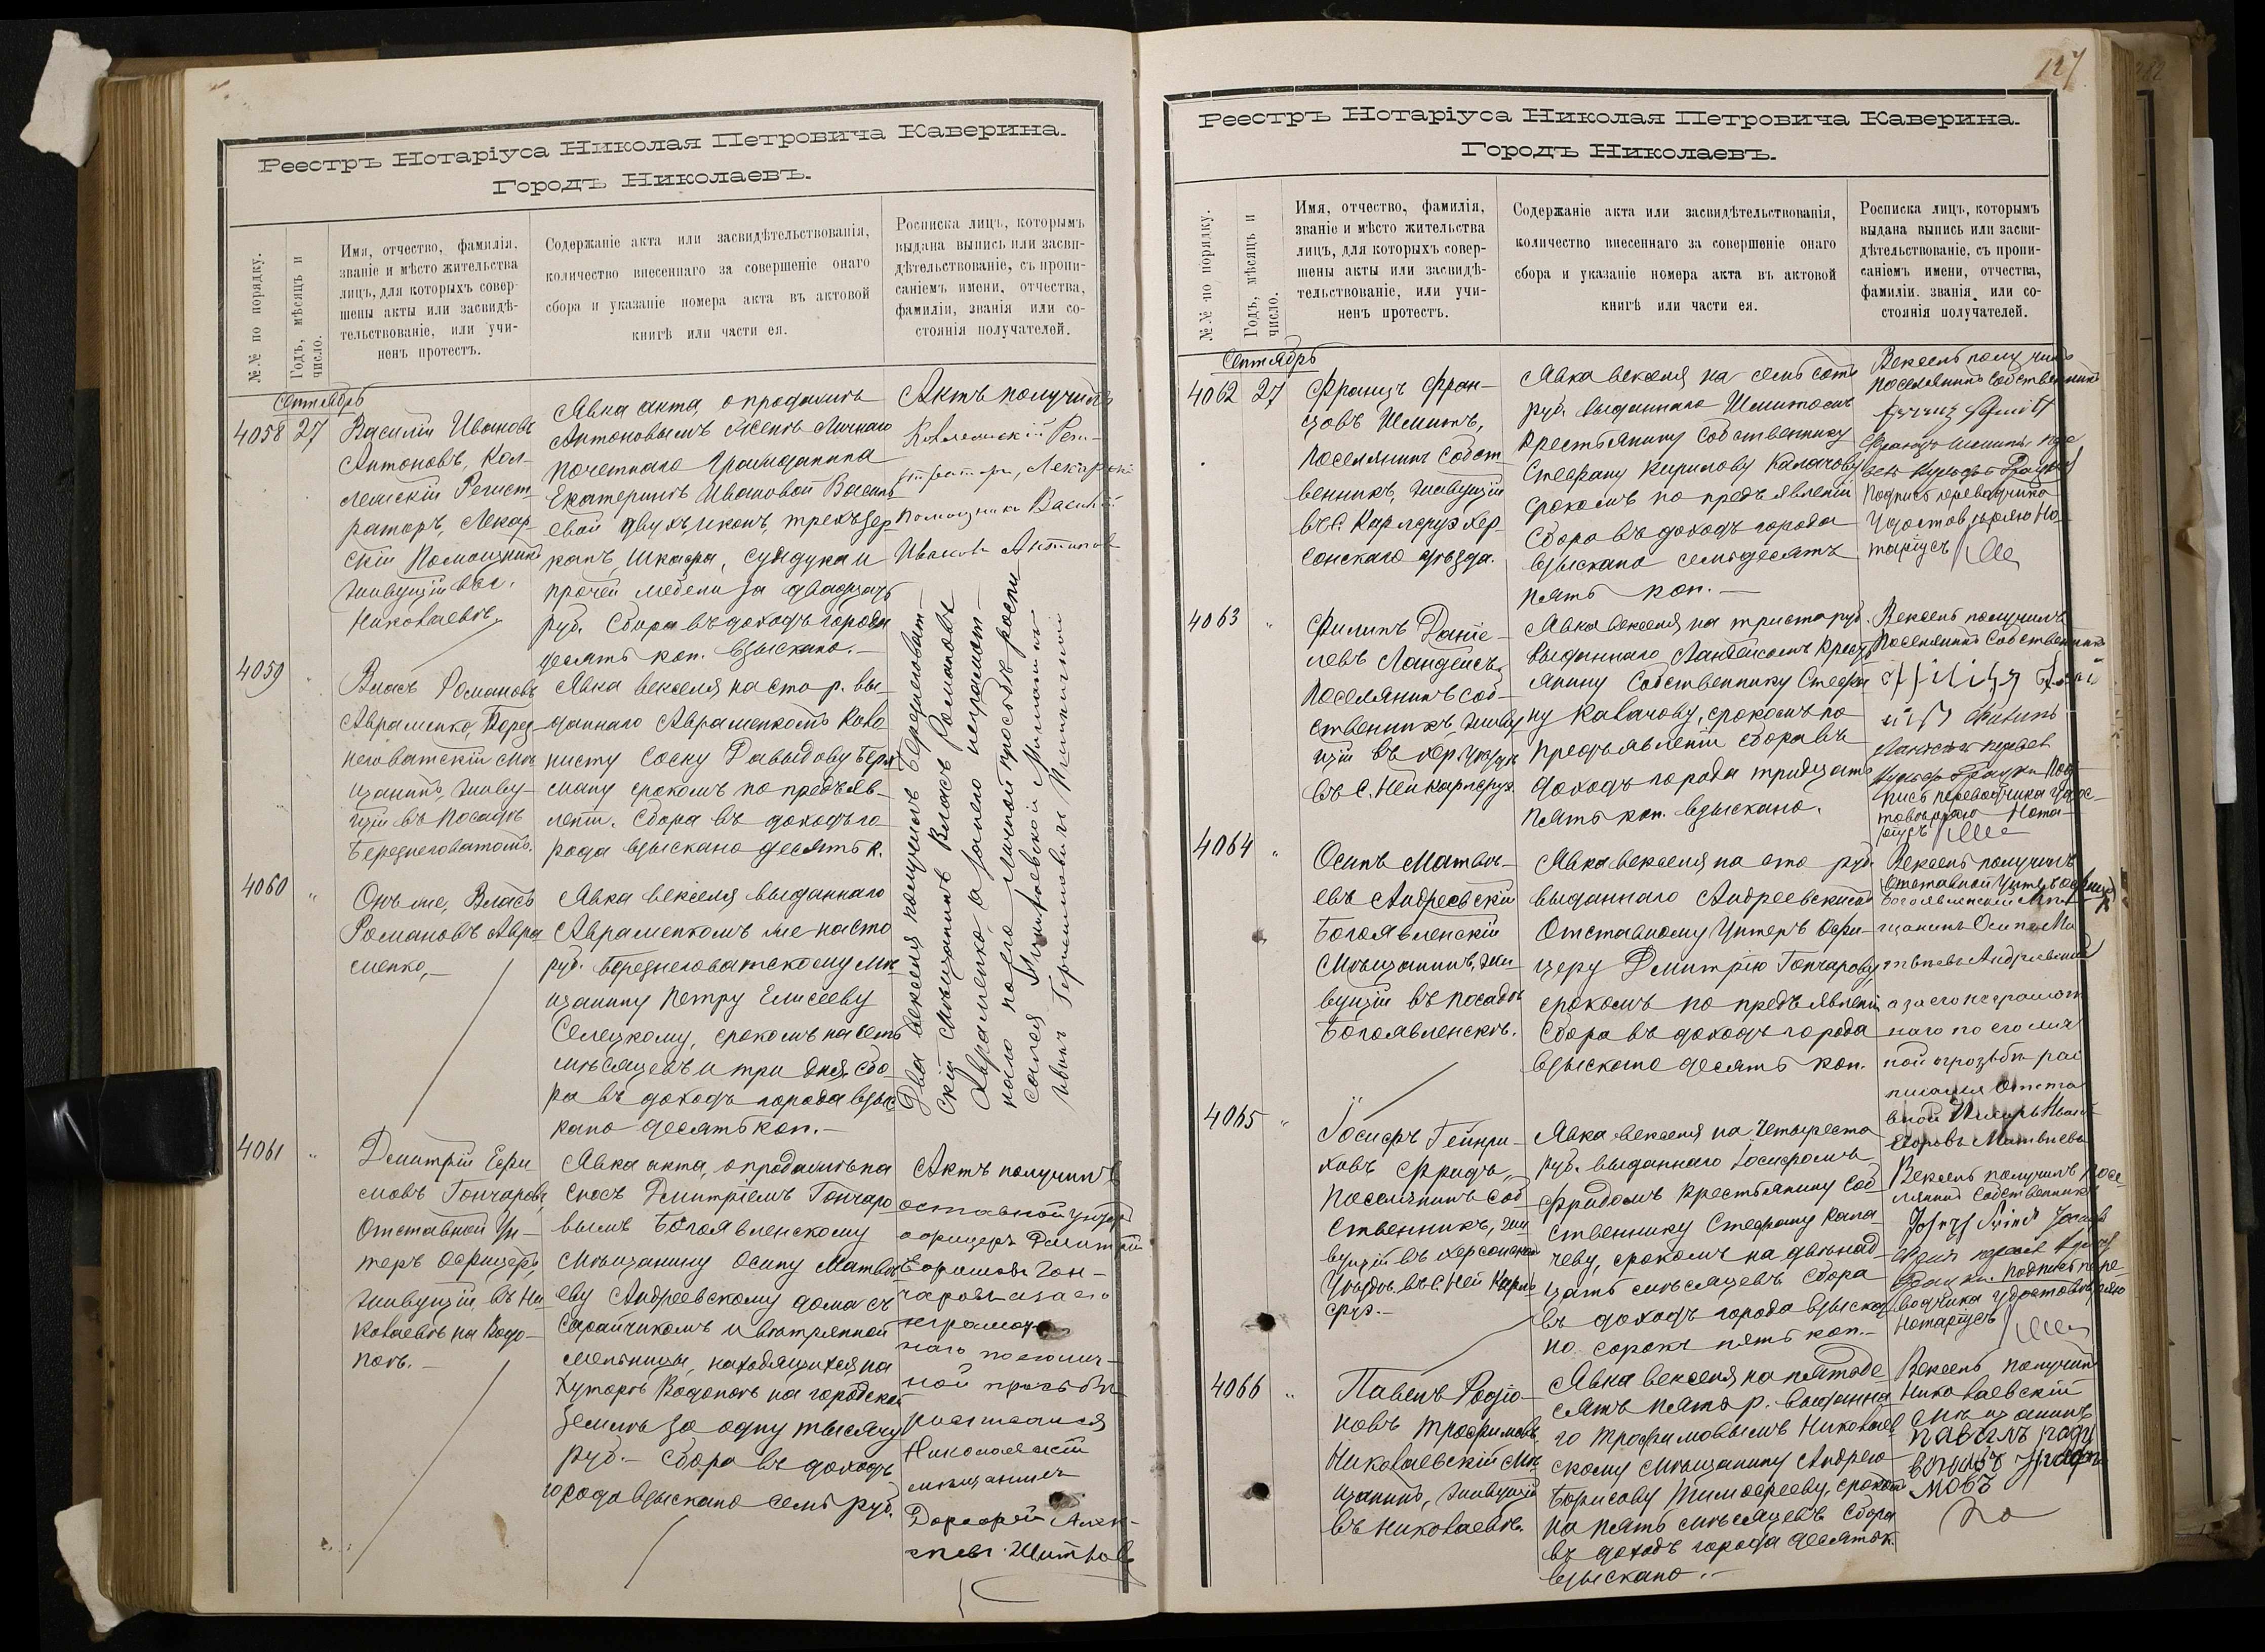 Реестръ Нотаріуса Николая Петровича Каверина.
Городъ Николаевъ.
№№ по порядку.
Годъ, мѣсяцъ и
число.
Имя, отчество, фамилія,
званіе и мѣсто жительства
лицъ, для которыхъ совер-
шены акты или засвидѣ-
тельствованіе, или учи-
ненъ протестъ.
Содержаніе акта или засвидѣтельствованія,
количество внесеннаго за совершеніе онаго
сбора и указаніе номера акта въ актовой
книгѣ или части ея.
Росписка лицъ, которымъ
выдана выпись или засви-
дѣтельствованіе, съ пропи-
саніемъ имени, отчества,
фамиліи, званія или со-
стоянія получателей.
Сентябрь
4058 27
Василій Ивановъ
Антоновъ, Кол-
лежскій Регист-
раторъ, Лекар-
скій Помощникъ
живущій въ г.
Николаевѣ.
Явка акта, о продажѣ
Антоновымъ женѣ Личнаго
Почетнаго Гражданина
Екатеринѣ Ивановой Василь-
евой двухъ иконъ, трехъ зер-
калъ, шкафа, сундука и
прочей мебели за двадцать
руб. Сбора въ доходъ города
десять коп. взыскано.-
Актъ получилъ
Коллежскій Реги-
страторъ, Лекарскій
Помощникъ Василій
Ивановъ Антоновъ
4059 "
Власъ Романовъ
Авраменко, Берез-
неговатскій Мѣ-
щанинъ, живу-
щій въ посадѣ
Березнеговатомъ.
Явка векселя на сто р. вы-
даннаго Авраменкомъ Коло-
нисту Соску Давыдову Бер-
ману срокомъ по предъяв-
леніи. Сбора въ доходъ го-
рода взыскано десять к.
4060 "
Онъ же, Власъ
Романовъ Авра-
менко,-
Явка векселя выданнаго
Авраменкомъ же на сто
руб. Березнеговатскому Мѣ-
щанину Петру Елисееву
Селецкому, срокомъ на семь
мѣсяцевъ и три дня. Сбо-
ра въ доходъ города взыс-
кано десять коп.-
Два векселя получилъ Березнеговат-
скій Мѣщанинъ Власъ Романовъ
Авраменко, а за него неграмот-
наго по его личной просьбѣ роспи-
сался Николаевскій Мѣщанинъ
4061 "
Дмитрій Ефи-
мовъ Гончаровъ,
Отставной Ун-
теръ Офицеръ,
живущій въ Ни-
колаевѣ на Водо-
поѣ.-
Явка акта, о продажѣ на
сносъ Дмитріемъ Гончаро-
вымъ Богоявленскому
Мѣщанину Осипу Матвѣ-
еву Андреевскому дома съ
сарайчикомъ и вѣтрянной
мельницы, находящихся на
Хуторѣ Водопоѣ на городской
землѣ за одну тысячу
руб.- Сбора въ доходъ
города взыскано семь руб.
Актъ получилъ
оставной унтер
офицеръ Дмитрій
Ефимовъ Гон-
чаровъ а за его
неграмот
наго по его лич-
ной просьбѣ
росписался
Николаевскій
мѣщанинъ
127
Реестръ Нотаріуса Николая Петровича Каверина.
Городъ Николаевъ.
№№ по порядку.
Годъ, мѣсяцъ и
число.
Имя, отчество, фамилія,
званіе и мѣсто жительства
лицъ, для которыхъ совер-
шены акты или засвидѣ-
тельствованіе, или учи-
ненъ протестъ.
Содержаніе акта или засвидѣтельствованія,
количество внесеннаго за совершеніе онаго
сбора и указаніе номера акта въ актовой
книгѣ или части ея.
Росписка лицъ, которымъ
выдана выпись или засви-
дѣтельствованіе, съ пропи-
саніемъ имени, отчества,
фамиліи. званія. или со-
стоянія получателей.
Сентябрь
4062 27
Францъ Фран-
цовъ Шмитъ,
Поселянинъ Собст-
венникъ, живущій
въ с. Карлсруэ Хер-
сонскаго уѣзда.
Явка векселя на семь сотъ
руб. выданнаго Шмитомъ
Крестьянину Собственнику
Стефану Кирилову Калачову
срокомъ по предъявленіи
Сбора въ доходъ города
взыскано семьдесятъ
пять коп.-
Вексель получилъ
поселянинъ собственникъ
Францъ Шмитъ
Подпись переводчика
удостовѣряю Но-
таріусъ
4063 "
Филипъ Даніе-
левъ Ландейсъ,
Поселянинъ Соб-
ственникъ, живу-
щій въ Хер. уѣздѣ
въ с. Ней Карлсруэ.
Явка векселя на триста руб.
выданнаго Ландейсомъ Крест-
янину Собственнику Стефа-
ну Калачову, срокомъ по
предъявленіи сбора въ
доходъ города тридцать
пять коп. взыскано.
Вексель получилъ
Поселянинъ Собственникъ
Филипъ
Под-
пись переводчика удос-
товѣряю Нота-
ріусъ
4064 "
Осипъ Матвѣ-
евъ Андреевскій
Богоявленскій
Мѣщанинъ, жи-
вущій въ посадѣ
Богоявленскѣ.
Явка векселя на сто руб.
выданнаго Андреевскимъ
Отставному Унтеръ Офи-
церу Дмитрію Гончарову,
срокомъ по предъявленіи
Сбора въ доходъ города
взыскано десять коп.
Вексель получилъ
(отставной Унтеръ офицеръ)
Богоявленскій Мѣ-
щанинъ Осипъ Ма
твѣевъ Андреевскій
а за его неграмот
наго по его лич
ной прозьбѣ рос
писался отста
вной Писарь
Егоровъ Матвѣевъ
4065 "
Іосифъ Гейнри-
ховъ Фридъ,
Поселянинъ Соб-
ственникъ, жи-
вущій въ Херсонскомъ
уѣздѣ въ с. Ней Карлс-
руэ.-
Явка векселя на четыреста
руб. выданнаго Іосифомъ
Фридомъ Крестьянину Соб-
ственнику Стефану Кала-
чеву, срокомъ на двѣнад-
цать мѣсяцевъ Сбора
въ доходъ города взыска-
но сорокъ пять коп.-
Вексель получилъ посе-
лянинъ собственникъ
Подпись пере-
водчика удостовѣряю
Нотаріусъ
4066 "
Павелъ Родіо-
новъ Трофимовъ
Николаевскій Мѣ-
щанинъ, живущій
въ Николаевѣ.
Явка векселя на пятьде-
сятъ пять р. выданна-
го Трофимовымъ Николаев-
скому Мѣщанину Андрею
Борисову Тимофееву, срокомъ
на пять мѣсяцевъ Сбора
въ доходъ города десять к.
взыскано.-
Вексель получилъ
Николаевскій
мѣщанинъ